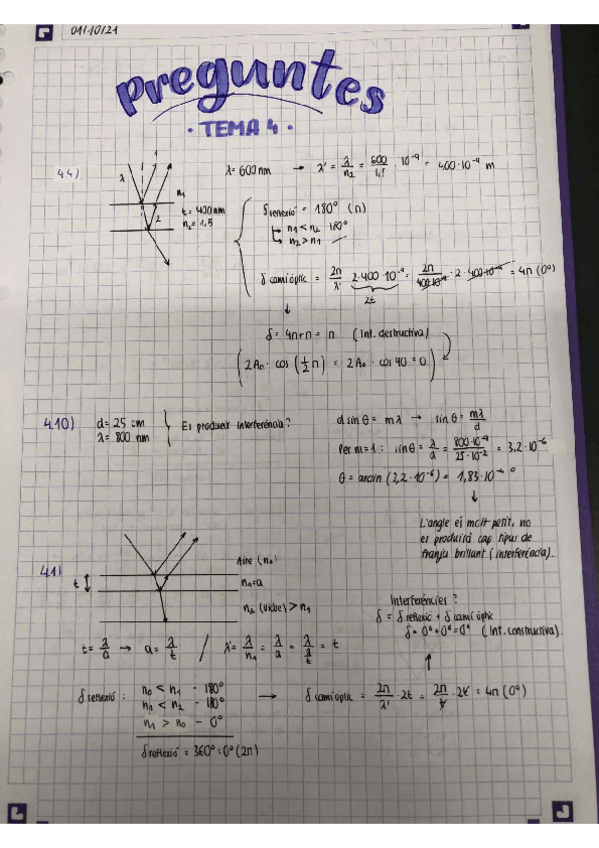 01/10/21
Preguntes
· TEMA 4 ·
4.4)
1
λ
n₁
t = 400 nm
n₂ = 1,5
2
λ = 600 nm → λ' = λ/n₂ = 600/1,5 · 10⁻⁹ = 400·10⁻⁹ m
δ reflexió = 180° (π)
n₁ < n₂ 180°
n₂ > n₁ —
δ camí òptic = 2π/λ' · 2·400·10⁻⁹ = 2π/400·10⁻⁹ · 2 · 400·10⁻⁹ = 4π (0°)
2t
↓
δ = 4π+π = π (Int. destructiva)
(2A₀ · cos (1/2 π) = 2A₀ · cos 90 = 0)
4.10)
d = 25 cm
λ = 800 nm
Es produeix interferència?
d sin θ = mλ → sin θ = mλ/d
Per m=1 : sin θ = λ/d = 800·10⁻⁹/25·10⁻² = 3,2·10⁻⁶
θ = arcsin (3,2·10⁻⁶) = 1,83·10⁻⁴ °
↓
L'angle és molt petit, no
es produirà cap tipus de
franja brillant (interferència).
4.1)
t
Aire (n₀)
n₁=a
n₂ (vidre) > n₁
Interferències?
δ = δ reflexió + δ camí òptic
δ = 0° + 0° = 0° (Int. constructiva)
t = λ/a → a = λ/t / λ' = λ/n₁ = λ/a = λ/(λ/t) = t
δ reflexió :
n₀ < n₁ - 180°
n₁ < n₂ - 180°
n₁ > n₀ - 0°
→ δ camí òptic = 2π/λ' · 2t = 2π/t · 2t = 4π (0°)
δ reflexió = 360° = 0° (2π)